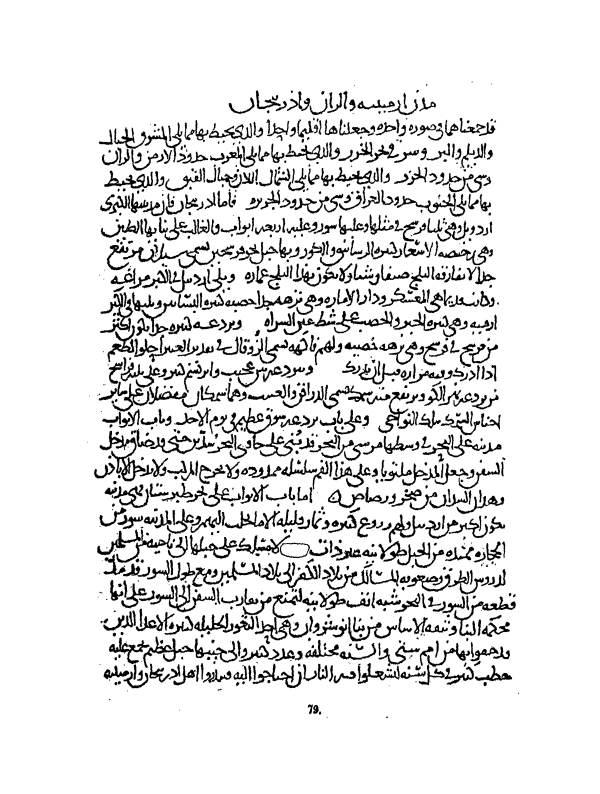 مدن ارمينيه والران واذربيجان
قد جمعناهما في صورة واحدة وجعلناها اقليما واحدا والذي يحيط بها مما يلي المشرق الجبال
والديلم والخزر والذي يحيط بها مما يلي المغرب حدود الارمن والران
وشي من حدود الخزر والذي يحيط بها مما يلي الشمال اللان وجبال القبق والذي يحيط
بها مما يلي الجنوب حدود العراق وشي من حدود الجزيره فاما اذربيجان فان مدينتها الكبرى
اردبيل وهي ثلثا فرسخ في مثلها وعليها سور وعليه اربعه ابواب والغالب على بنايها الطين
وهي رخيصه الاسعار كثيره الرساتيق والكور وبها جبل فرسخين يسمى سبلان مرتفع
جدا لا يفارقه الثلج صيفا وشتا ولا يكون بهذا الثلج عماره ويلي اردبيل في الكبر مراغه
وكانت قديما هي المعسكر ودار الاماره وهي نزهه جدا خصبه كثيره البساتين ويليها في الكبر
ارميه وهي كثيره الخير والخصب على شط بحر السراه وبردعه كبيره جدا تكون اكثر
من فرسخ في فرسخ وهي نزهه خصبه ولهم فاكهه تسمى الزوقال في تقدير الغبيرا حلو الطعم
اذا ادرك وفيه مراره قبل ان يدرك
من بردعه نهر الكر ويرتفع منه سمك
اجناس السمك بتلك النواحي وعلى باب بردعه سوق عظيم في يوم الاحد وباب الابواب
مدينه على البحر في وسطها مرسى من البحر قد بني على حافتي البحر سدين حتى ضاق مدخل
السفن وجعل المدخل ملتويا وعلى هذا الفم سلسله ممدوده ولا يخرج المركب ولا يدخل الا باذن
وهذان السدان من صخر ورصاص اما باب الابواب على بحر طبرستان فهي مدينه
تكون اكبر من اردبيل لهم زروع كثيره وثمار قليله الا ما حمل اليهم وعلى المدينه سور من
الحجاره ممتده من الجبل طولا ذات لا مسلك على جبلها الى ناحيه المسلمين
لدروس الطرق وصعوبه المسالك من بلاد الكفر الى بلاد المسلمين ومع طول السور قد مد
قطعه من السور في البحر شبه انف طولا لتمنع من تقارب السفن الى السور على انها
محكمه البنا وثيقه الاساس من بنا انوشروان وهي احد الثغور الجليله كثيره الاعدا الذين
قد حفوا بها من امم شتى والسنه مختلفه وعدد كثير والى جنبها جبل عظيم يجمع عليه
حطب كثير في كل سنه ليشعلوا فيه النار ان احتاجوا اليه اهل اذربيجان وارمينيه
79.